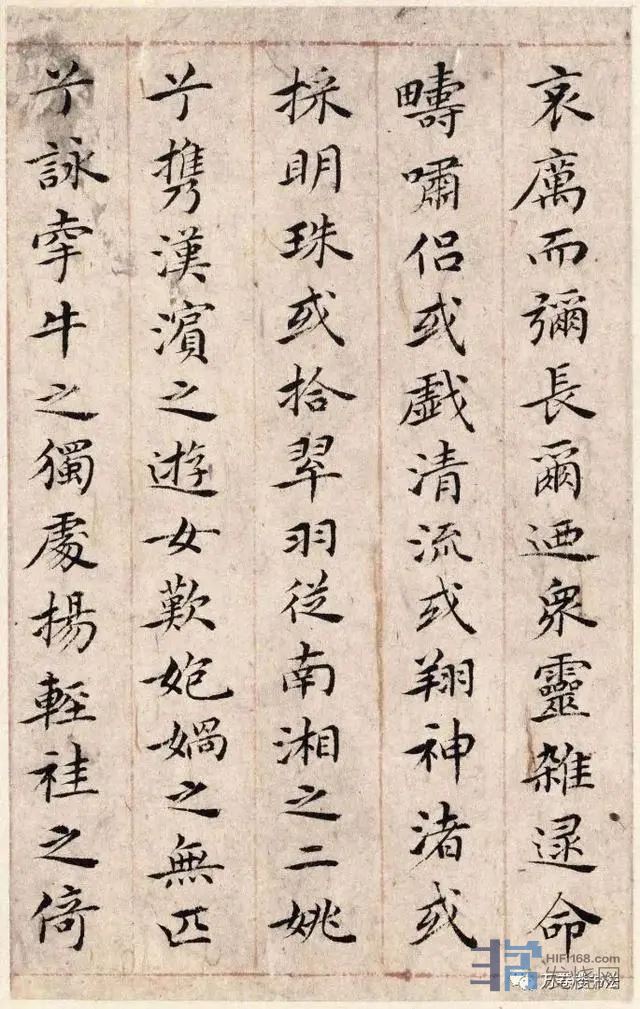 哀厲而彌長爾迺衆靈雜遝命
疇嘯侣或戯清流或翔神渚或
採明珠或拾翠羽從南湘之二姚
兮携漢濱之遊女歎媧之無匹
兮詠牽牛之獨處揚輕袿之倚
HIFI168.com
发烧网